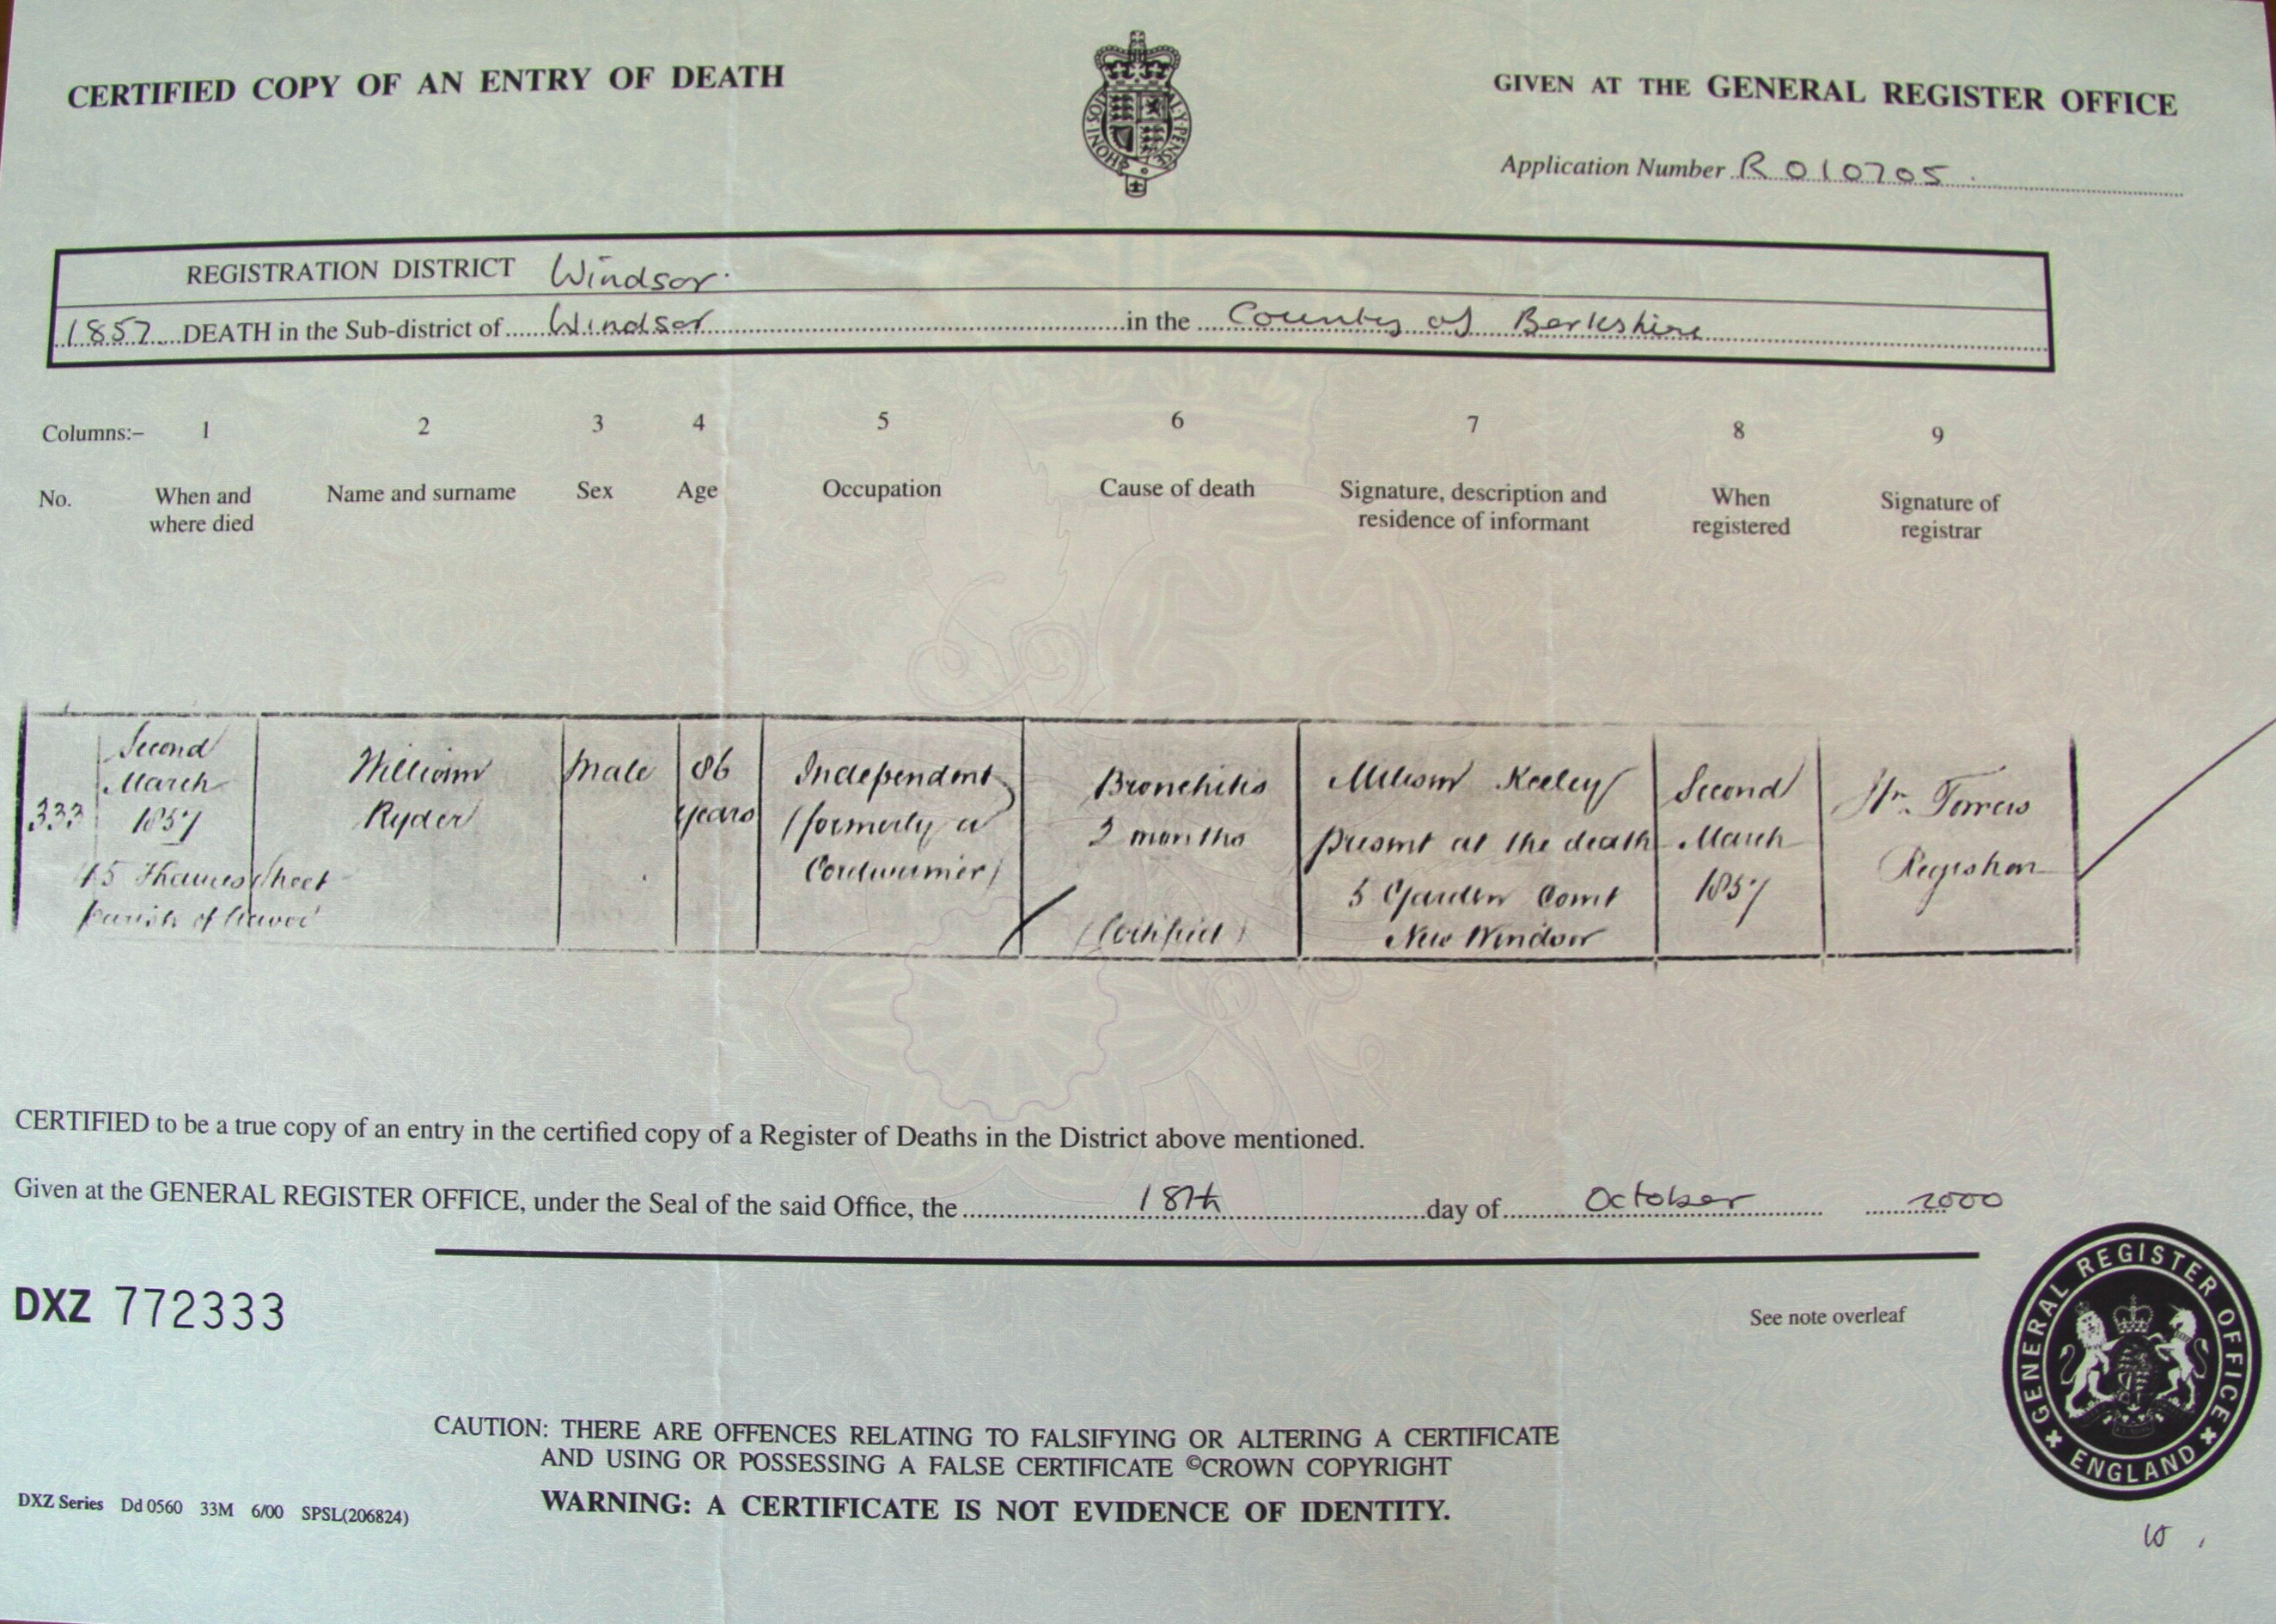 CERTIFIED COPY OF AN ENTRY OF DEATH
GIVEN AT THE GENERAL REGISTER OFFICE
Application Number R 010705
REGISTRATION DISTRICT Windsor
1857 DEATH in the Sub-district of Windsor in the County of Berkshire
Columns:– 1 2 3 4 5 6 7 8 9
No. When and where died
Name and surname
Sex
Age
Occupation
Cause of death
Signature, description and residence of informant
When registered
Signature of registrar
333
Second
March
1857
45 Thames Street
parish of
William
Ryder
Male
86
years
Independent
(formerly a
Cordwainer)
Bronchitis
2 months
(Certified)
Keeley
present at the death
5 Garden Court
New Windsor
Second
March
1857
Registrar
CERTIFIED to be a true copy of an entry in the certified copy of a Register of Deaths in the District above mentioned.
Given at the GENERAL REGISTER OFFICE, under the Seal of the said Office, the 18th day of October 2000
DXZ 772333
See note overleaf
GENERAL REGISTER OFFICE
ENGLAND
CAUTION: THERE ARE OFFENCES RELATING TO FALSIFYING OR ALTERING A CERTIFICATE
AND USING OR POSSESSING A FALSE CERTIFICATE ©CROWN COPYRIGHT
WARNING: A CERTIFICATE IS NOT EVIDENCE OF IDENTITY.
DXZ Series Dd 0560 33M 6/00 SPSL(206824)